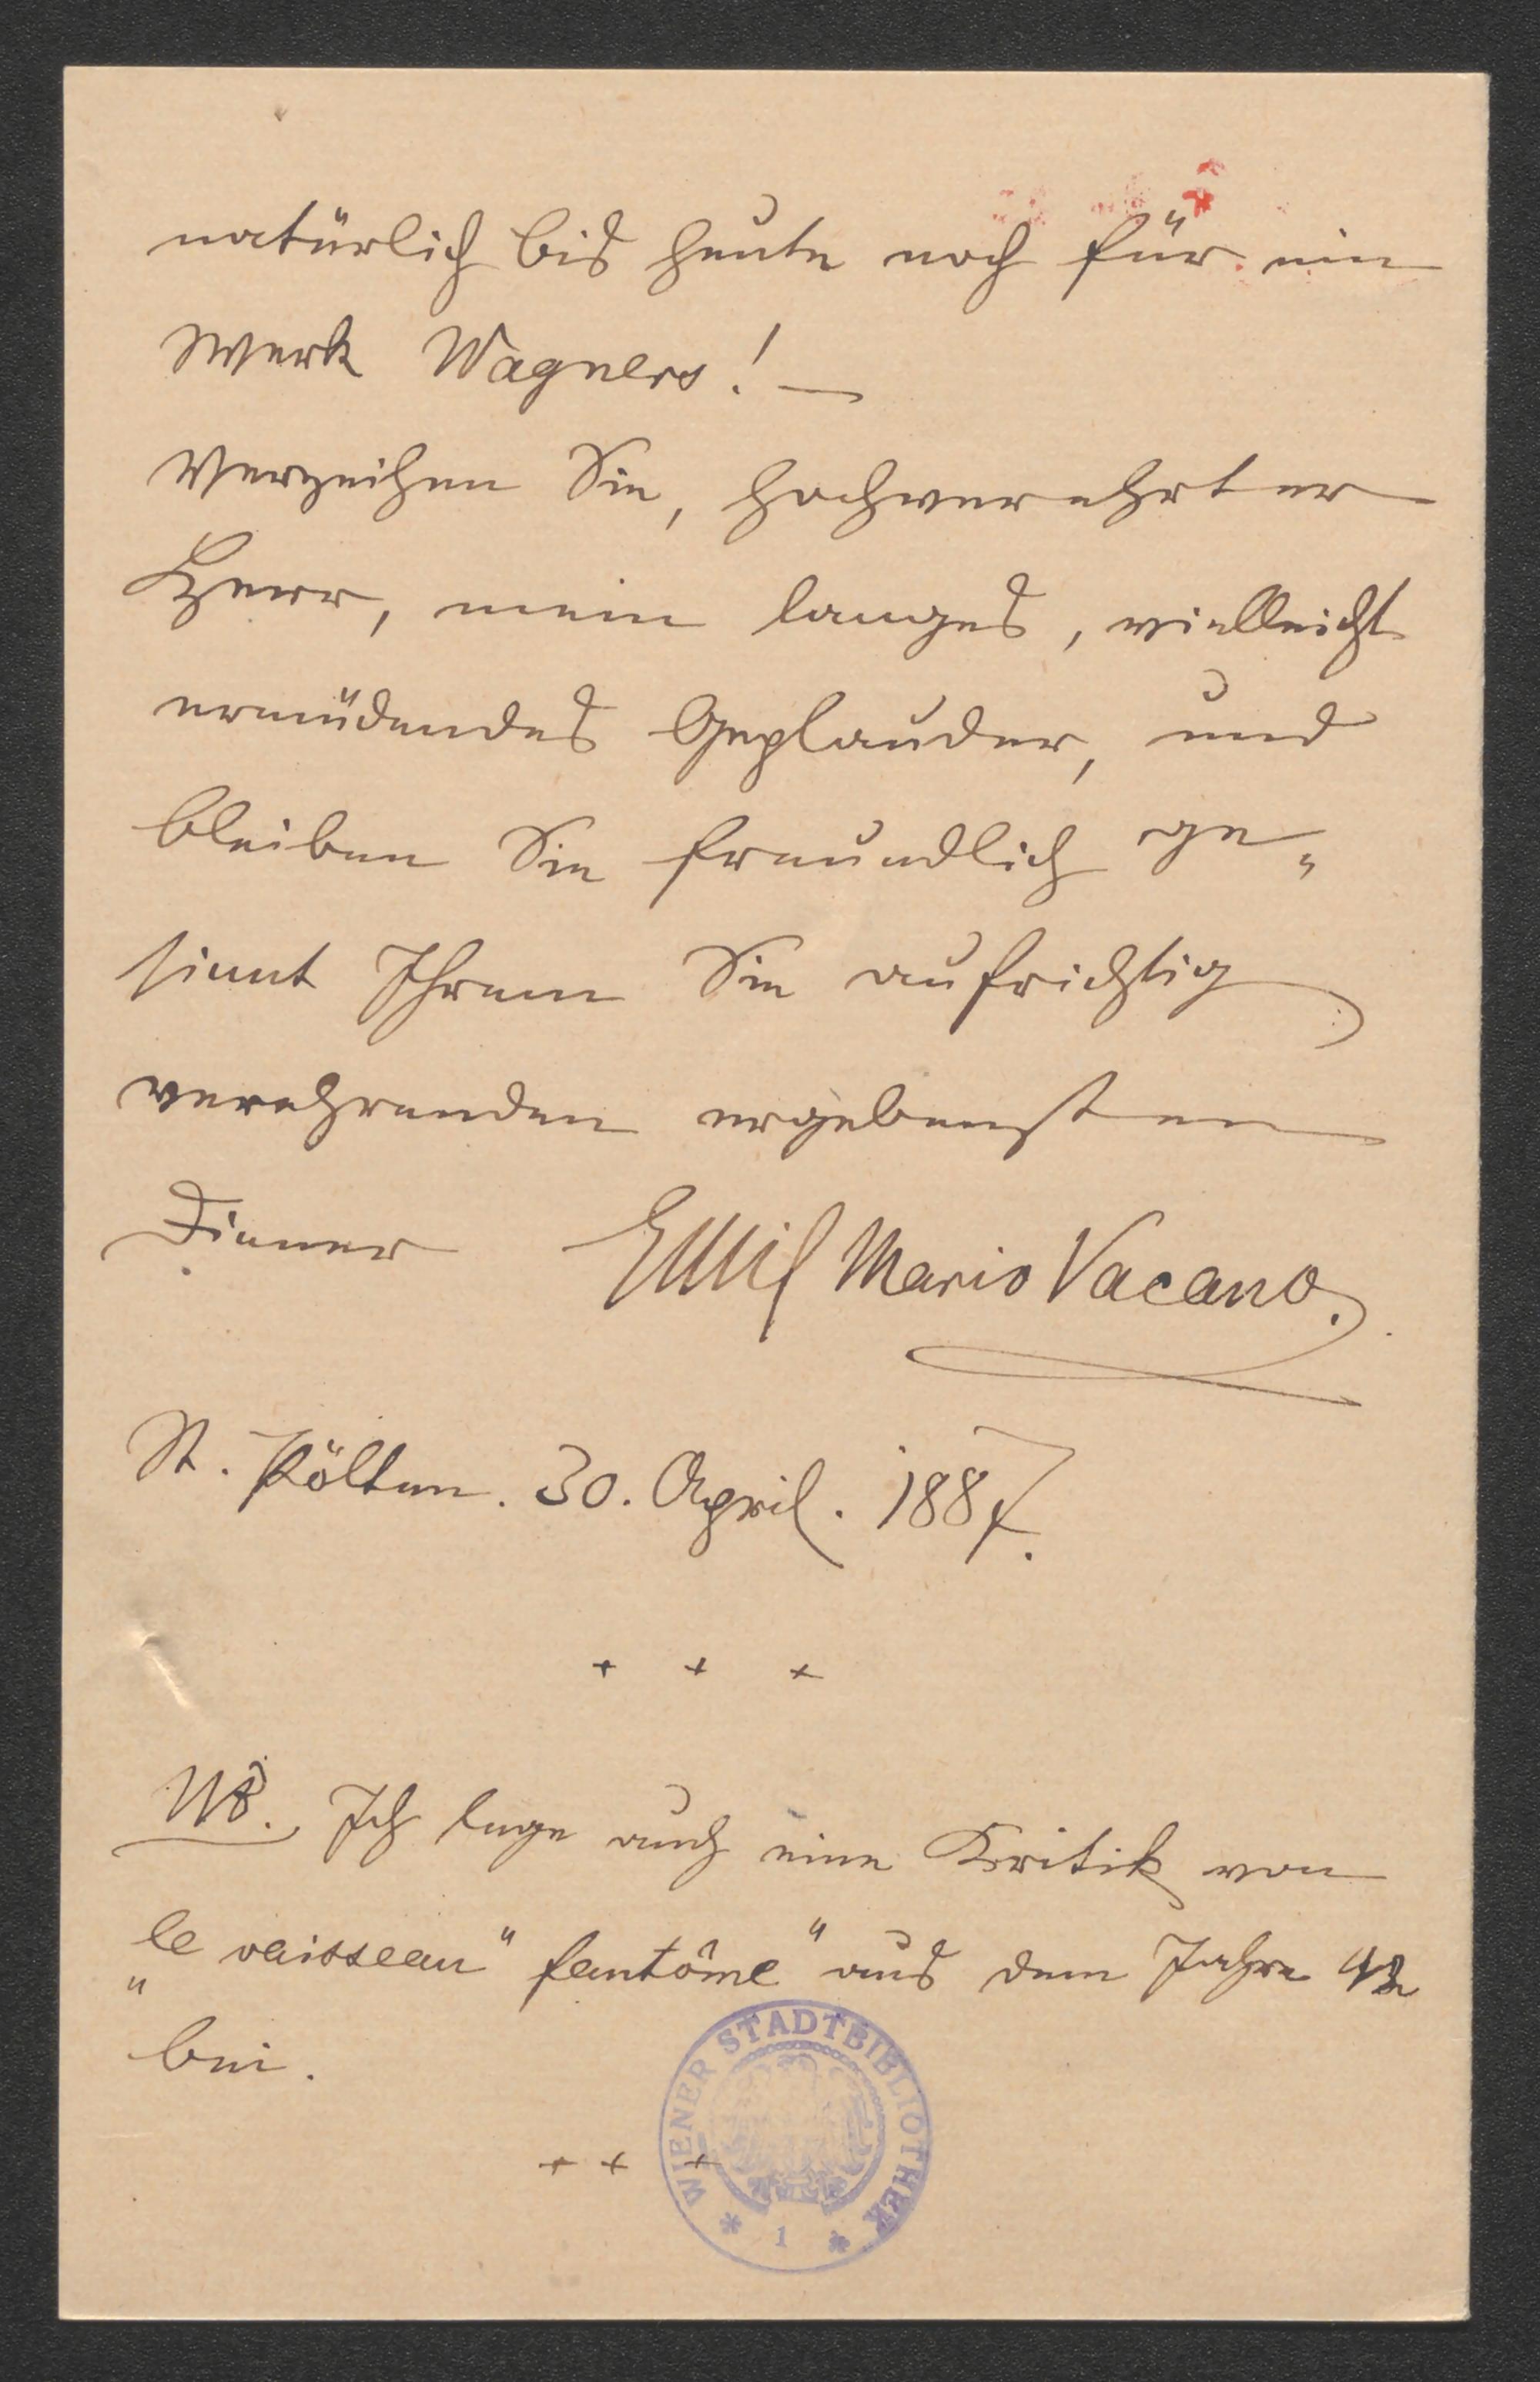 natürlich bis heute noch für ein
Werk Wagners! —
Verzeihen Sie, hochverehrter
Herr, mein langes, vielleicht
ermüdendes Geplauder, und
bleiben Sie freundlich ge„
sinnt Ihrem Sie aufrichtig
verehrenden ergebensten
Diener Emil Mario Vacano.
St. Pölten. 30. April. 1887.
+ + +
NB. Ich lege auch eine Kritik von
„le vaisseau“ fantôme“ aus dem Jahre 42
bei.
+ + +
WIENER STADTBIBLIOTHEK
* 1 *